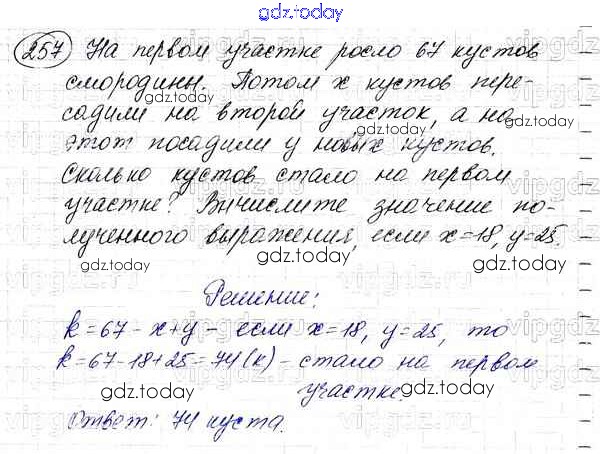 gdz.today
257 На первом участке росло 67 кустов
gdz.today
смородины. Потом x кустов пере-
gdz.today
садили на второй участок, а на
gdz.today
этот посадили y новых кустов.
Сколько кустов стало на первом
gdz.today
участке? Вычислите значение по-
лученного выражения, если x=18, y=25.
gdz.today
gdz.today
Решение:
k=67-x+y - если x=18, y=25, то
gdz.today
gdz.today
k=67-18+25=74(к) - стало на первом
gdz.today
участке.
gdz.today
Ответ: 74 куста.
gdz.today